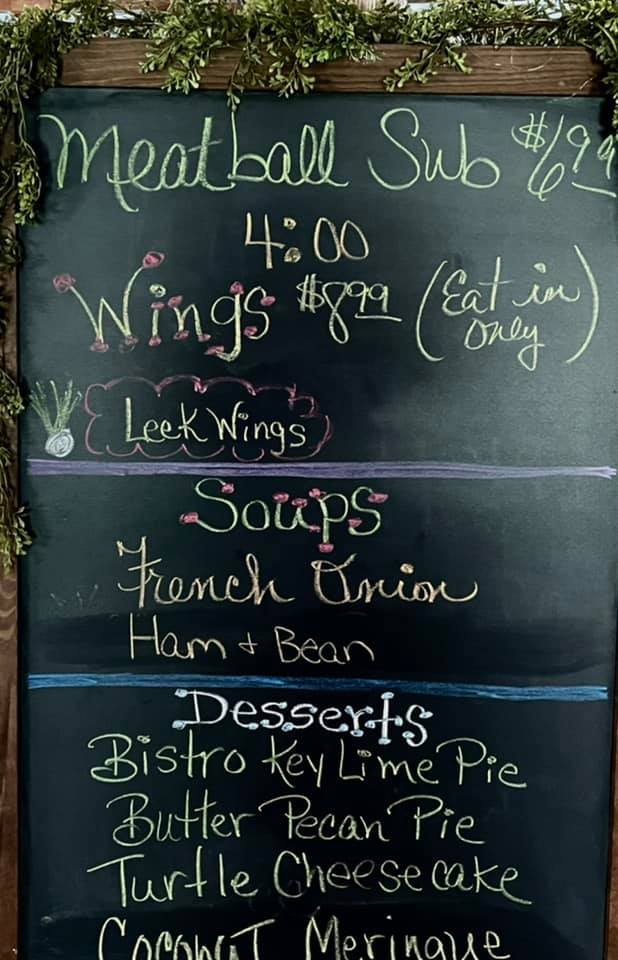 Meatball Sub $6.99
4:00
Wings $8.99 (Eat in only)
Leek Wings
Soups
French Onion
Ham + Bean
Desserts
Bistro Key Lime Pie
Butter Pecan Pie
Turtle Cheesecake
Coconut Meringue